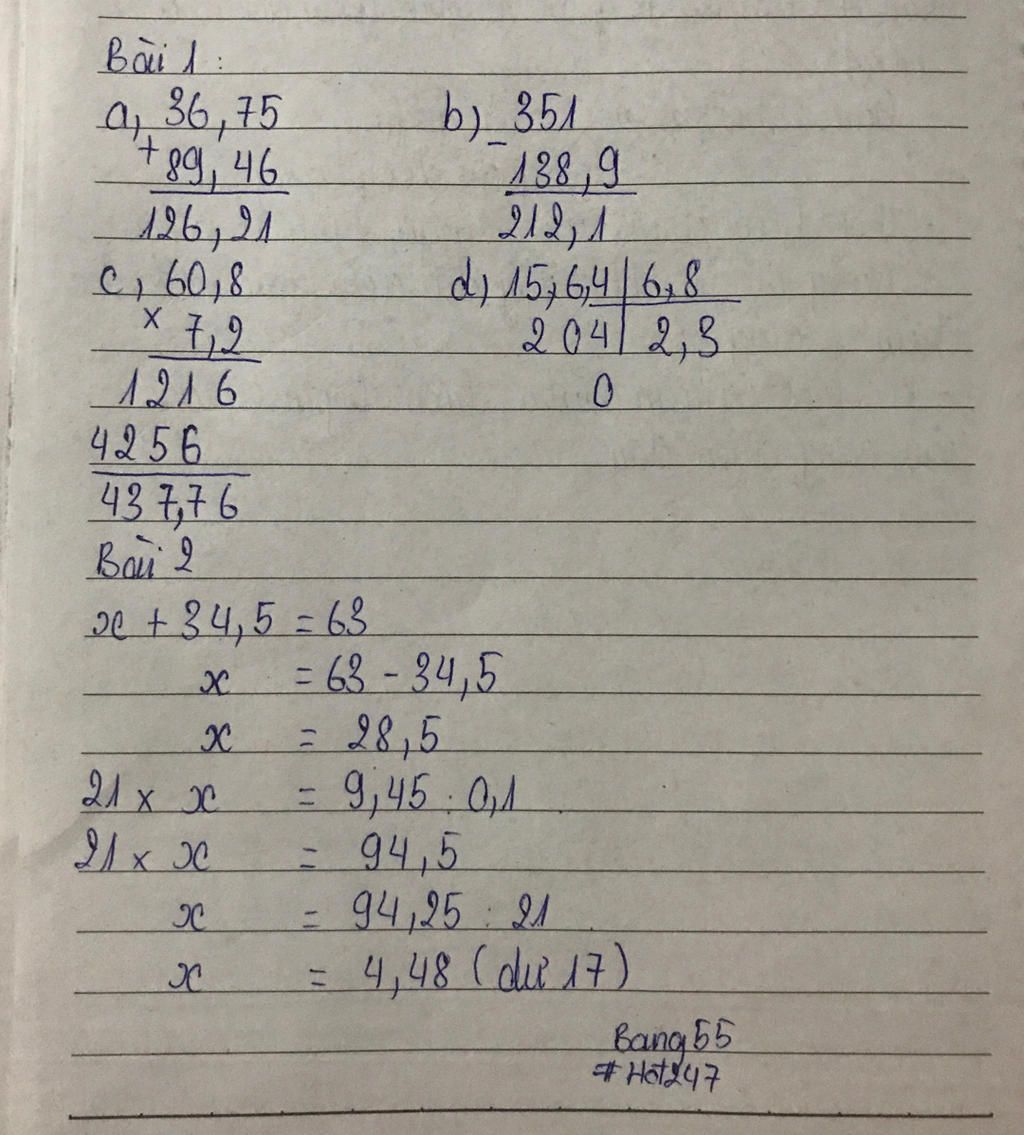 Bài 1 :
a, 36,75 b) 351
+ 89,46 - 138,9
126,21 212,1
c, 60,8 d, 15,6,4 | 6,8
x 7,2 204 | 2,3
1216 0
4256
437,76
Bài 2
x + 34,5 = 63
x = 63 - 34,5
x = 28,5
21 x x = 9,45 : 0,1
21 x x = 94,5
x = 94,25 : 21
x = 4,48 (dư 17)
Bang55
#Hot247